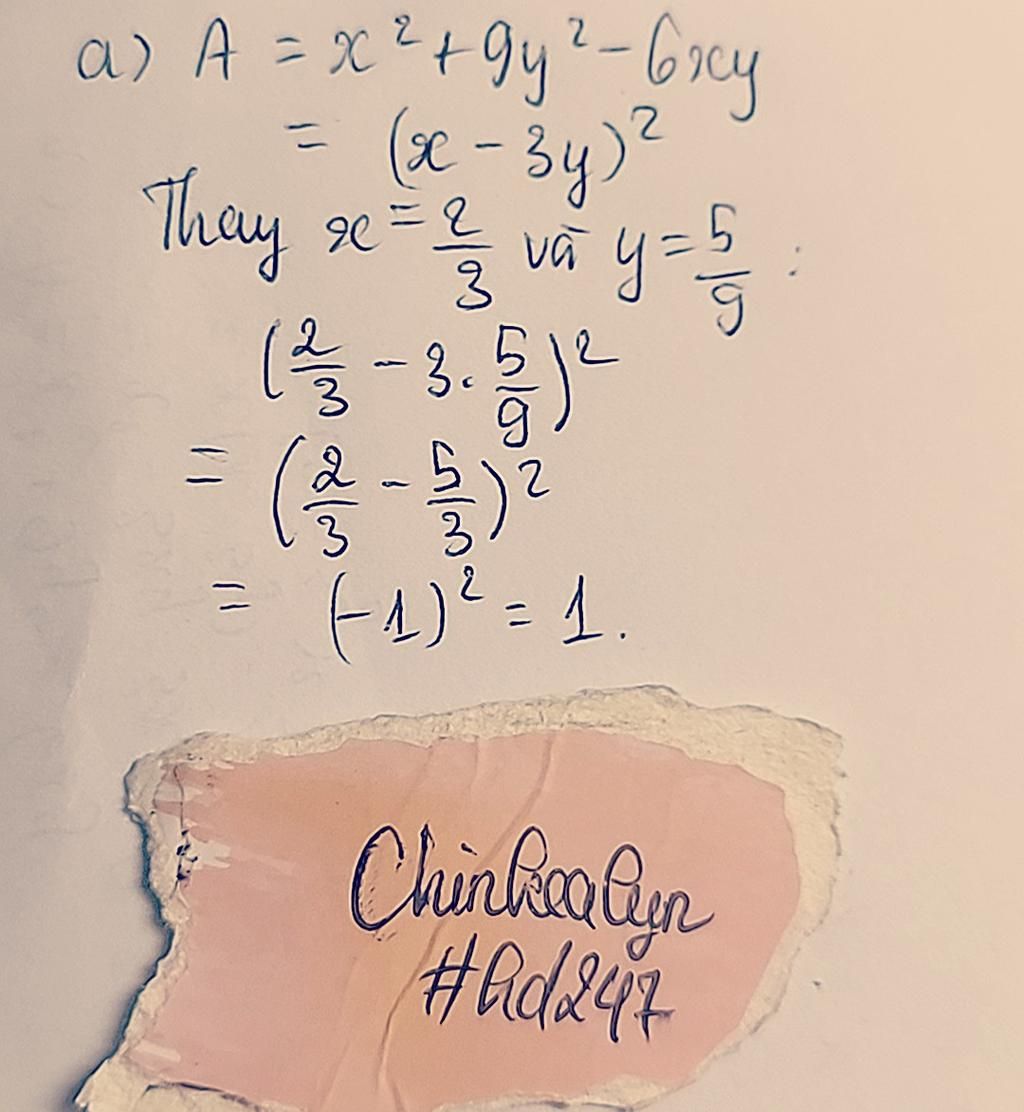 a) A = x² + 9y² - 6xy
= (x - 3y)²
Thay x = 2/3 và y = 5/9 :
(2/3 - 3 . 5/9)²
= (2/3 - 5/3)²
= (-1)² = 1.
Chinkealyn
#hd247